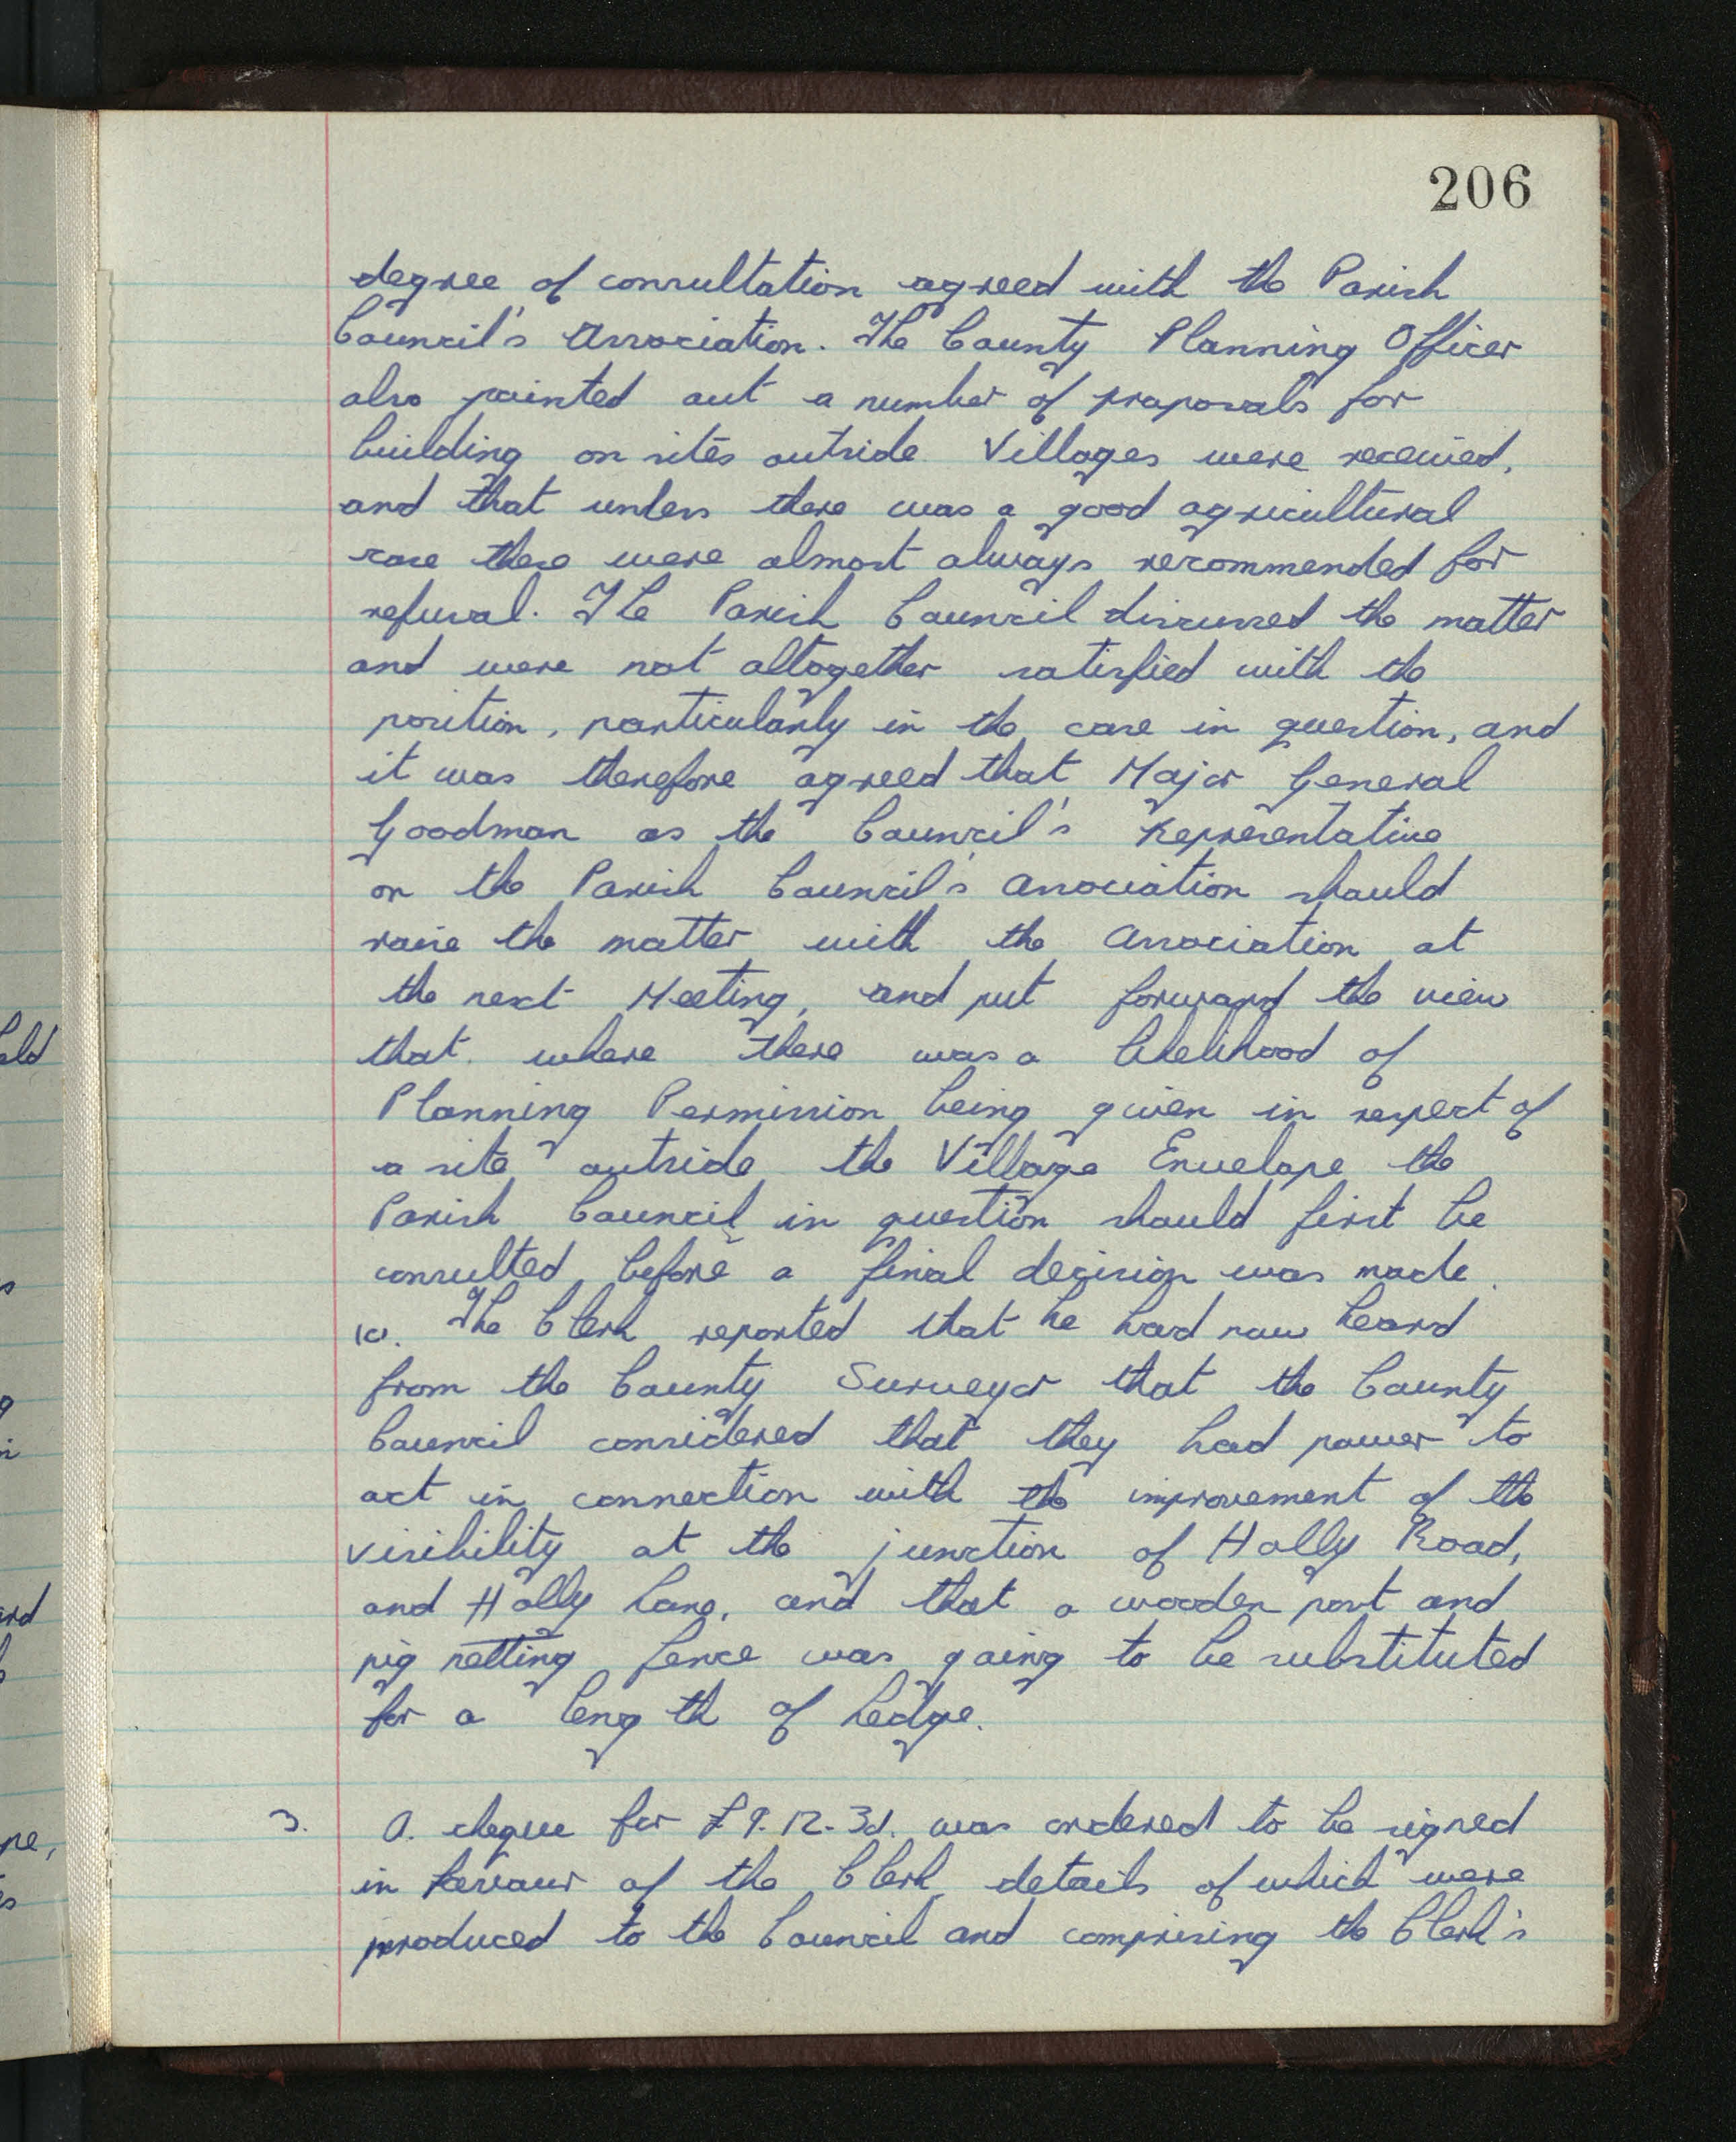 206
degree of consultation agreed with the Parish
Council's Association. The County Planning Officer
also pointed out a number of proposals for
building on sites outside Villages were received,
and that unless there was a good agricultural
case these were almost always recommended for
refusal. The Parish Council discussed the matter
and were not altogether satisfied with the
position, particularly in the case in question, and
it was therefore agreed that Major General
Goodman as the Council's Representative
on the Parish Council's Association should
raise the matter with the Association at
the next Meeting, and put forward the view
that where there was a likelihood of
Planning Permission being given in respect of
a site outside the Village Envelope the
Parish Council in question should first be
consulted before a final decision was made.
(c). The Clerk reported that he had now heard
from the County Surveyor that the County
Council considered that they had power to
act in connection with the improvement of the
visibility at the junction of Holly Road,
and Holly Lane, and that a wooden post and
pig netting fence was going to be substituted
for a length of hedge.
3. A. cheque for £9.12.3d. was ordered to be signed
in favour of the Clerk details of which were
produced to the Council and comprising the Clerk's